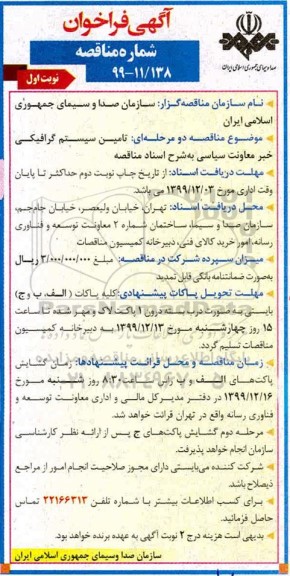 آگهی فراخوان
شماره مناقصه
۹۹-۱۱/۱۳۸
نوبت اول
صدا و سیمای جمهوری اسلامی ایران
نـام سـازمان مناقصه‌گـزار: سـازمان صـدا و سـیمای جمهـوری
اسلامی ایران
موضـوع مناقصـه دو مرحلـه‌ای: تامیـن سیسـتم گرافیکـی
خبر معاونت سیاسی به‌شرح اسناد مناقصه
مهلـت دریافـت اسـناد: از تاریخ چاپ نوبت دوم حداکثر تا پایان
وقت اداری مورخ ۱۳۹۹/۱۲/۰۳ می باشد.
محـل دریافـت اسـناد: تهـران، خیابـان ولیعصـر، خیابـان جام‌جـم،
سازمان صـدا و سیما، ساختمان شماره ۲ معاونت توسعه و فناوری
رسانه، امور خرید کالای فنی، دبیرخانه کمیسیون مناقصات
میـزان سـپرده شـرکت در مناقصـه: مبلـغ ۳/۰۰۰/۰۰۰/۰۰۰ ریـال
به‌صورت ضمانتنامه بانکی قابل تمدید
مهلـت تحویـل پـاکات پیشـنهادی: کلیه پـاکات (الـف، ب و ج)
بایستی به صورت در بسـته درون ۱ پاکت لاک و مهر شده تا ساعت
۱۵ روز چهارشـنبه مورخ ۱۳۹۹/۱۲/۱۳ به دبیرخانه کمیسـیون
مناقصات تسلیم گردد.
زمـان مناقصـه و محـل قرائـت پیشـنهادها: زمان گشـایش
پاکت‌های الـف و ب رأس سـاعت ۸:۳۰ روز شـنبه مـورخ
۱۳۹۹/۱۲/۱۶ در دفتر مدیـرکل مالـی و اداری معاونـت توسـعه و
فناوری رسانه واقع در تهران قرائت خواهد شد.
مرحلـه دوم گشـایش پاکت‌هـای ج پـس از ارائـه نظـر کارشناسـی
سازمان انجام خواهد پذیرفت.
شرکت کننده می‌بایستی دارای مجوز صلاحیت انجام امور از مراجع
ذیصلاح باشد.
بـرای کسـب اطلاعـات بیشـتر بـا شـماره تلفـن ۲۲۱۶۶۳۱۳ تمـاس
حاصل فرمائید.
بدیهی است هزینه درج ۲ نوبت آگهی به عهده برنده خواهد بود.
سازمان صدا وسیمای جمهوری اسلامی ایران